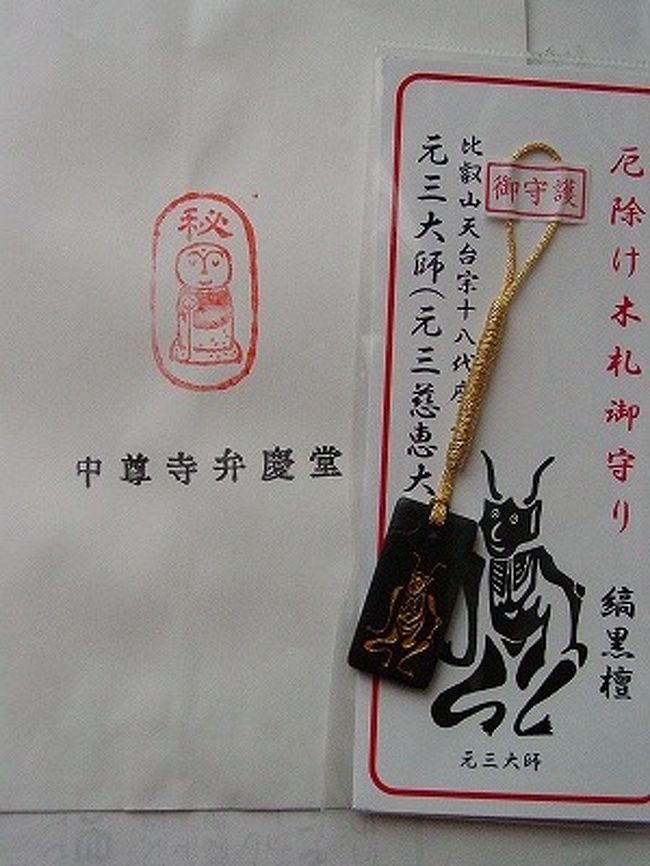 秘
中尊寺弁慶堂
御守護
厄除け木札御守り
縞黒檀
比叡山天台宗十八代座
元三大師(元三慈恵大
元三大師